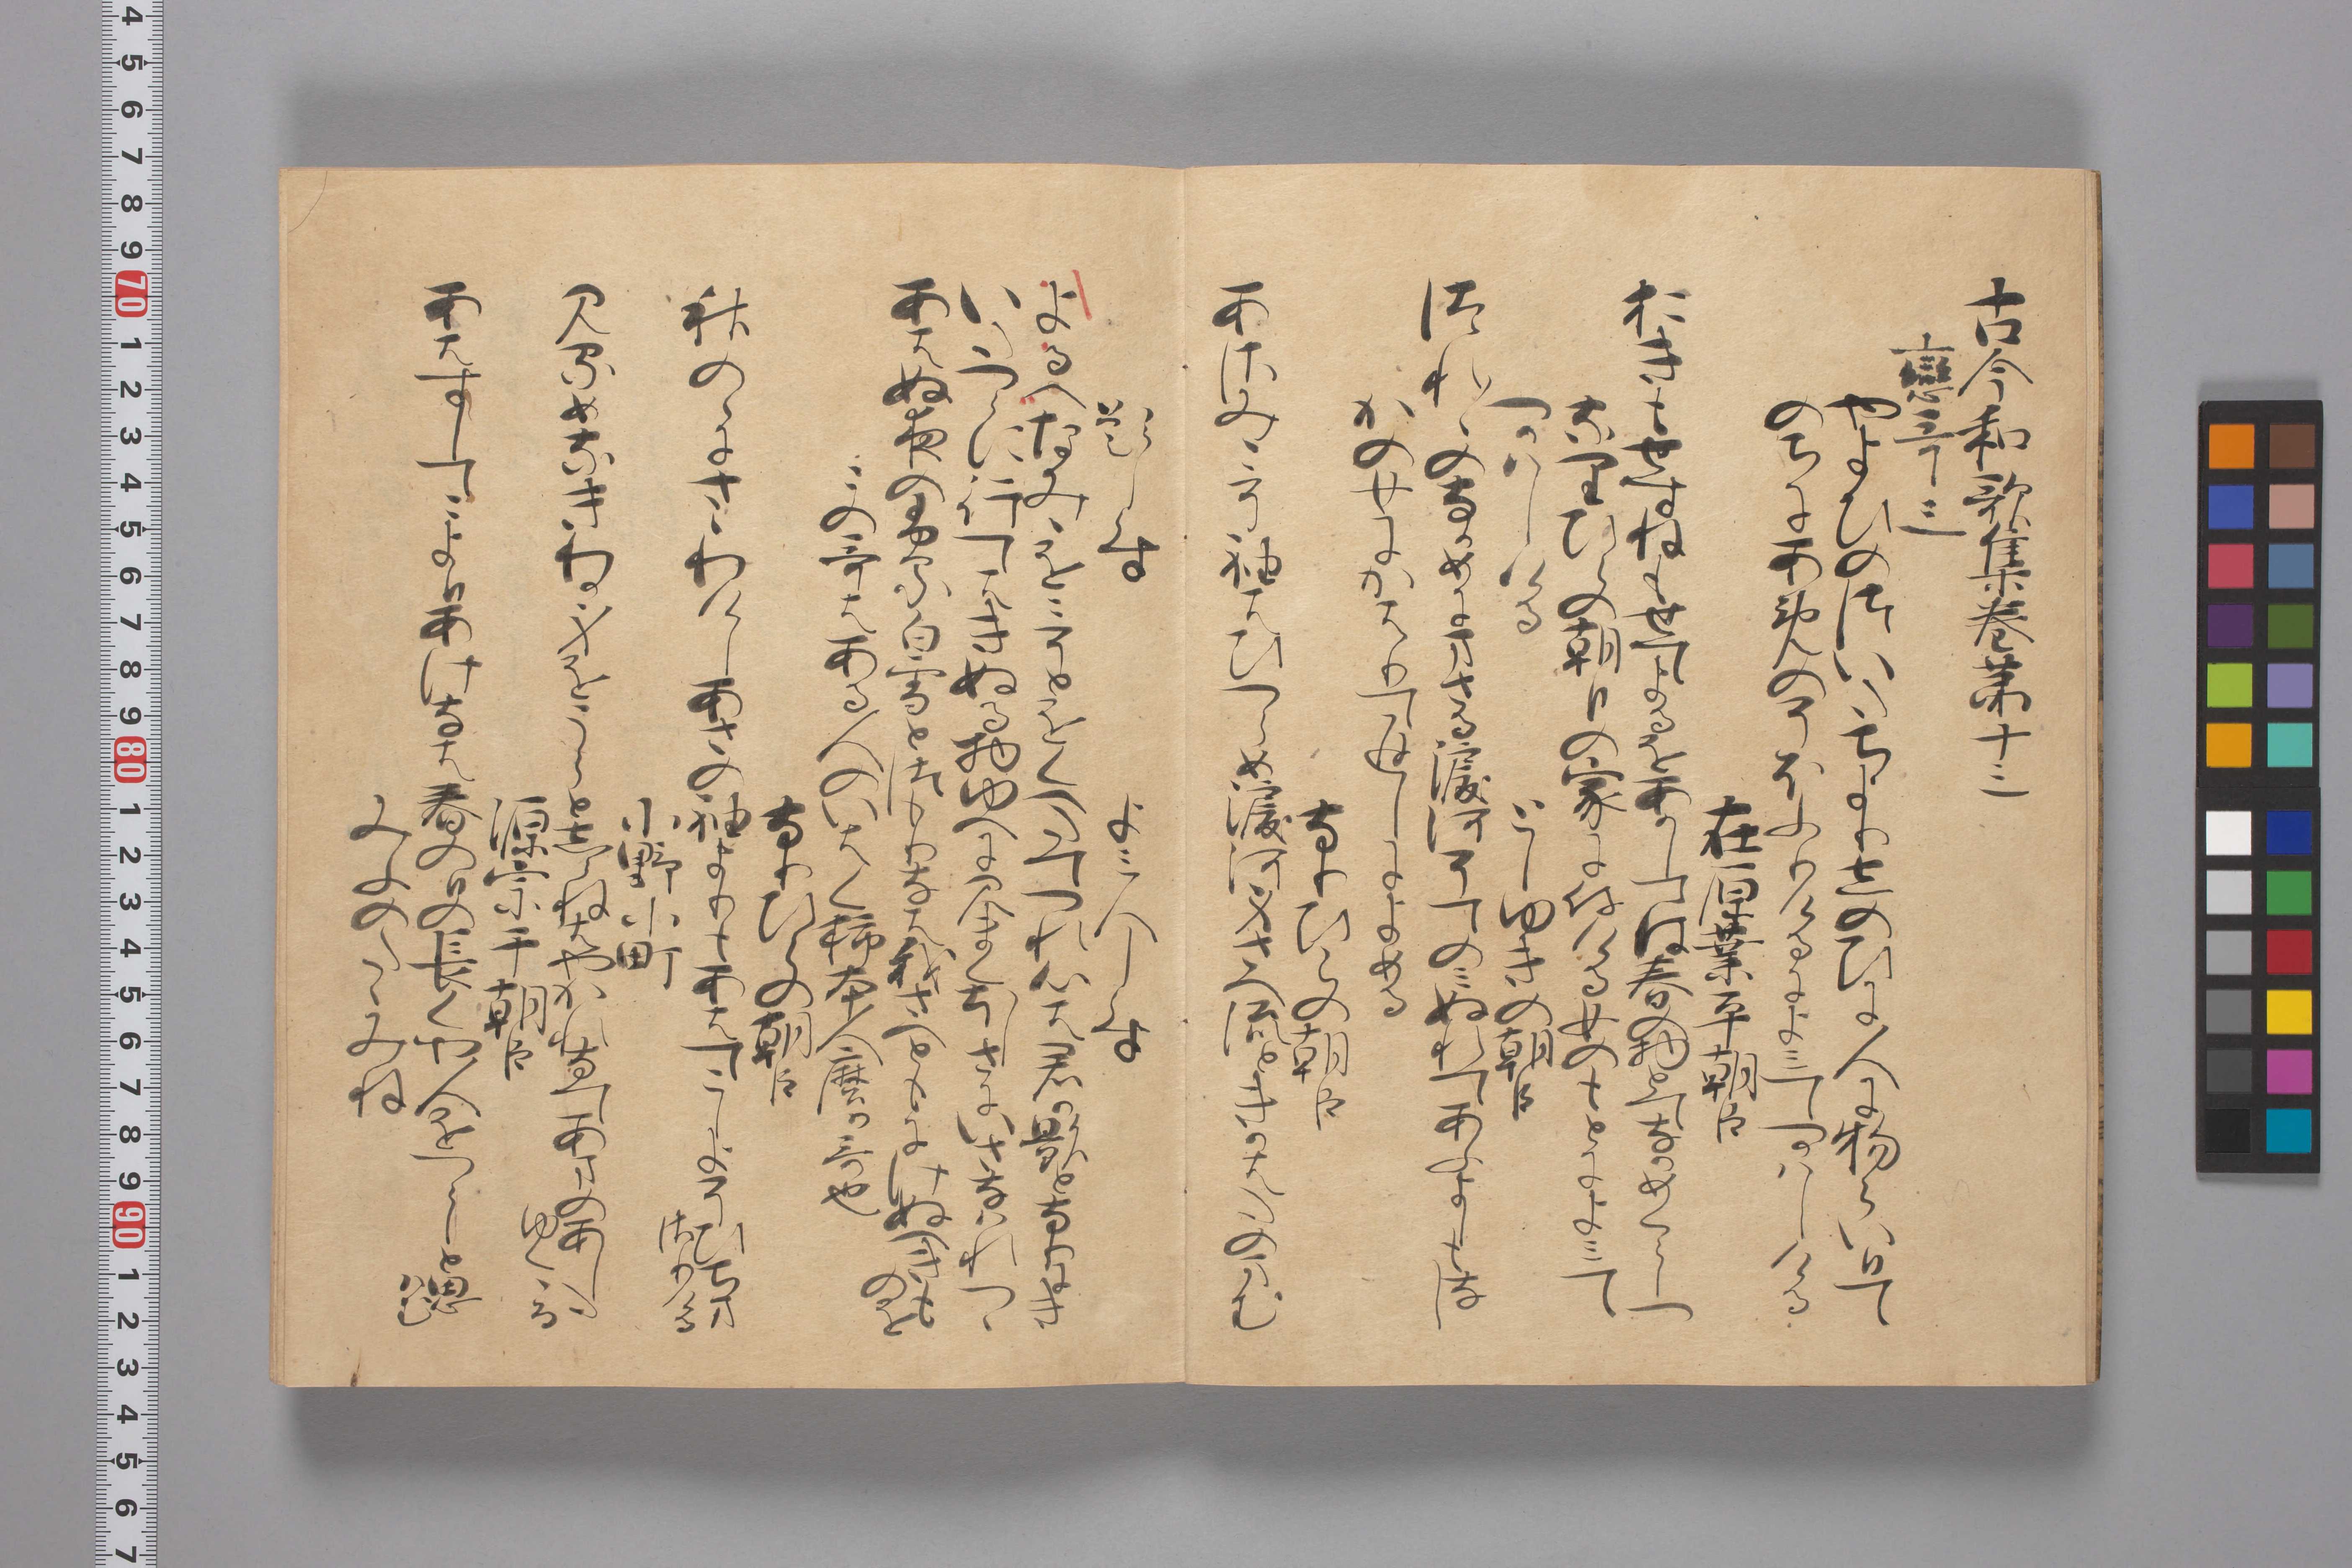 古今和歌集巻第十三
戀哥三
やよひのついたちよりしのひに人に物らいひて
のちに雨のそほふりけるによみてつかはしける
在原業平朝臣
おきもせすねもせてよるをあかしては春の物とてなかめくらしつ
なりひらの朝臣の家に侍ける女のもとによみて
つかはしける
としゆきの朝臣
つれ〱のなかめにまさる涙河そてのみぬれてあふよしもなし
かの女にかはりて返しによめる
なりひらの朝臣
あさみこそ袖はひつらめ涙河身さへ流るときかはたのまむ
題しらす
よみ人しらす
よるへなみ身をこそとをくへたてつれ心は君か影となりにき
いたつらに行てはきぬる物ゆへに見まくほしさにいさなはれつゝ
あはぬ夜のふる白雪とつもりなは我さへともにけぬへき物を
この哥はある人のいはく柿本人麿か哥也
なりひらの朝臣
秋のゝにさゝわけしあさの袖よりもあはてこしよそひちまさりける
小野小町
見るめなきわか身をうらとしらねはやかれなてあまのあしたゆくゝる
源宗于朝臣
あはすしてこよひあけなは春の日の長くや人をつらしと思はむ
みふのたゝみね